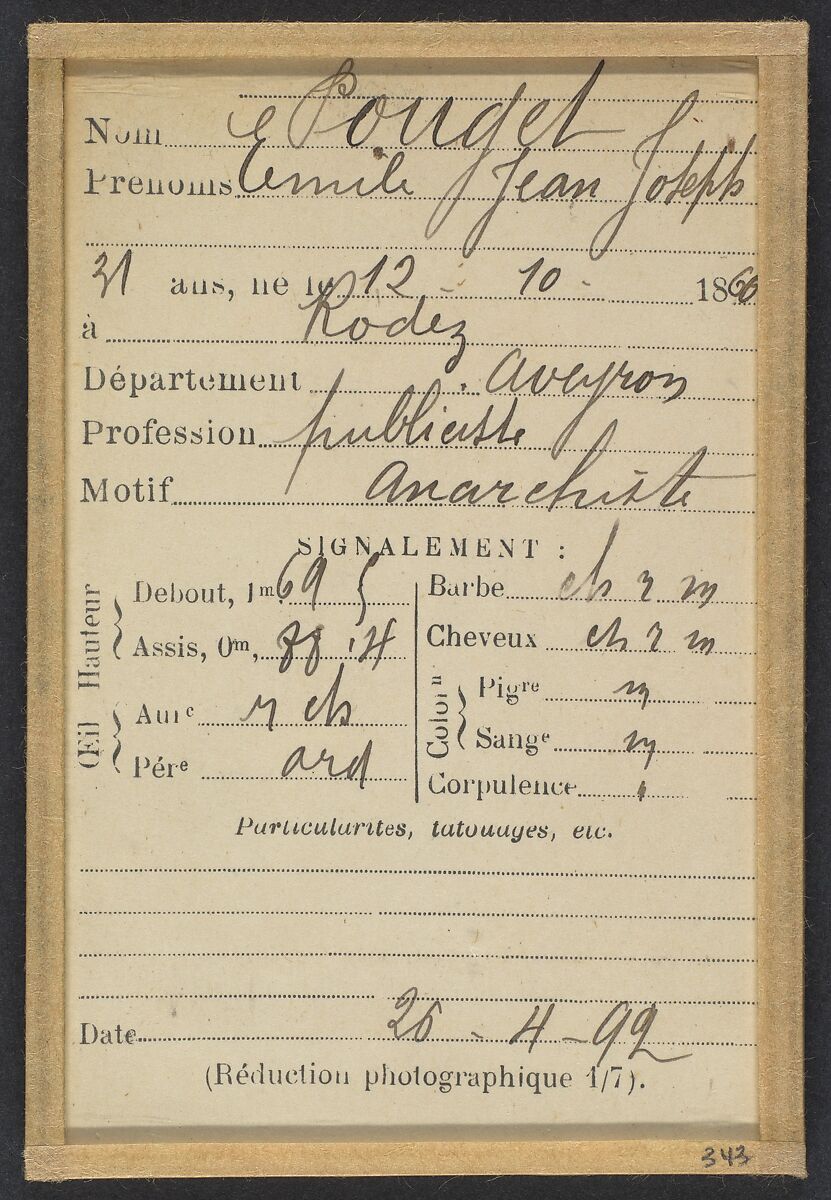 Nom Pouget
Prénoms Emile Jean Joseph
31 ans, né le 12 - 10 - 1860
à Rodez
Département Aveyron
Profession publiciste
Motif anarchiste
SIGNALEMENT :
Hauteur
Debout, 1m, 69 5
Assis, 0m, 88,4
Œil
Aurc r ch
Pére ord
Barbe ch r m
Cheveux ch r m
Colorn
Pigre m
Sange m
Corpulence
Particularités, tatouages, etc.
Date 26 - 4 - 92
(Réduction photographique 1/7).
343